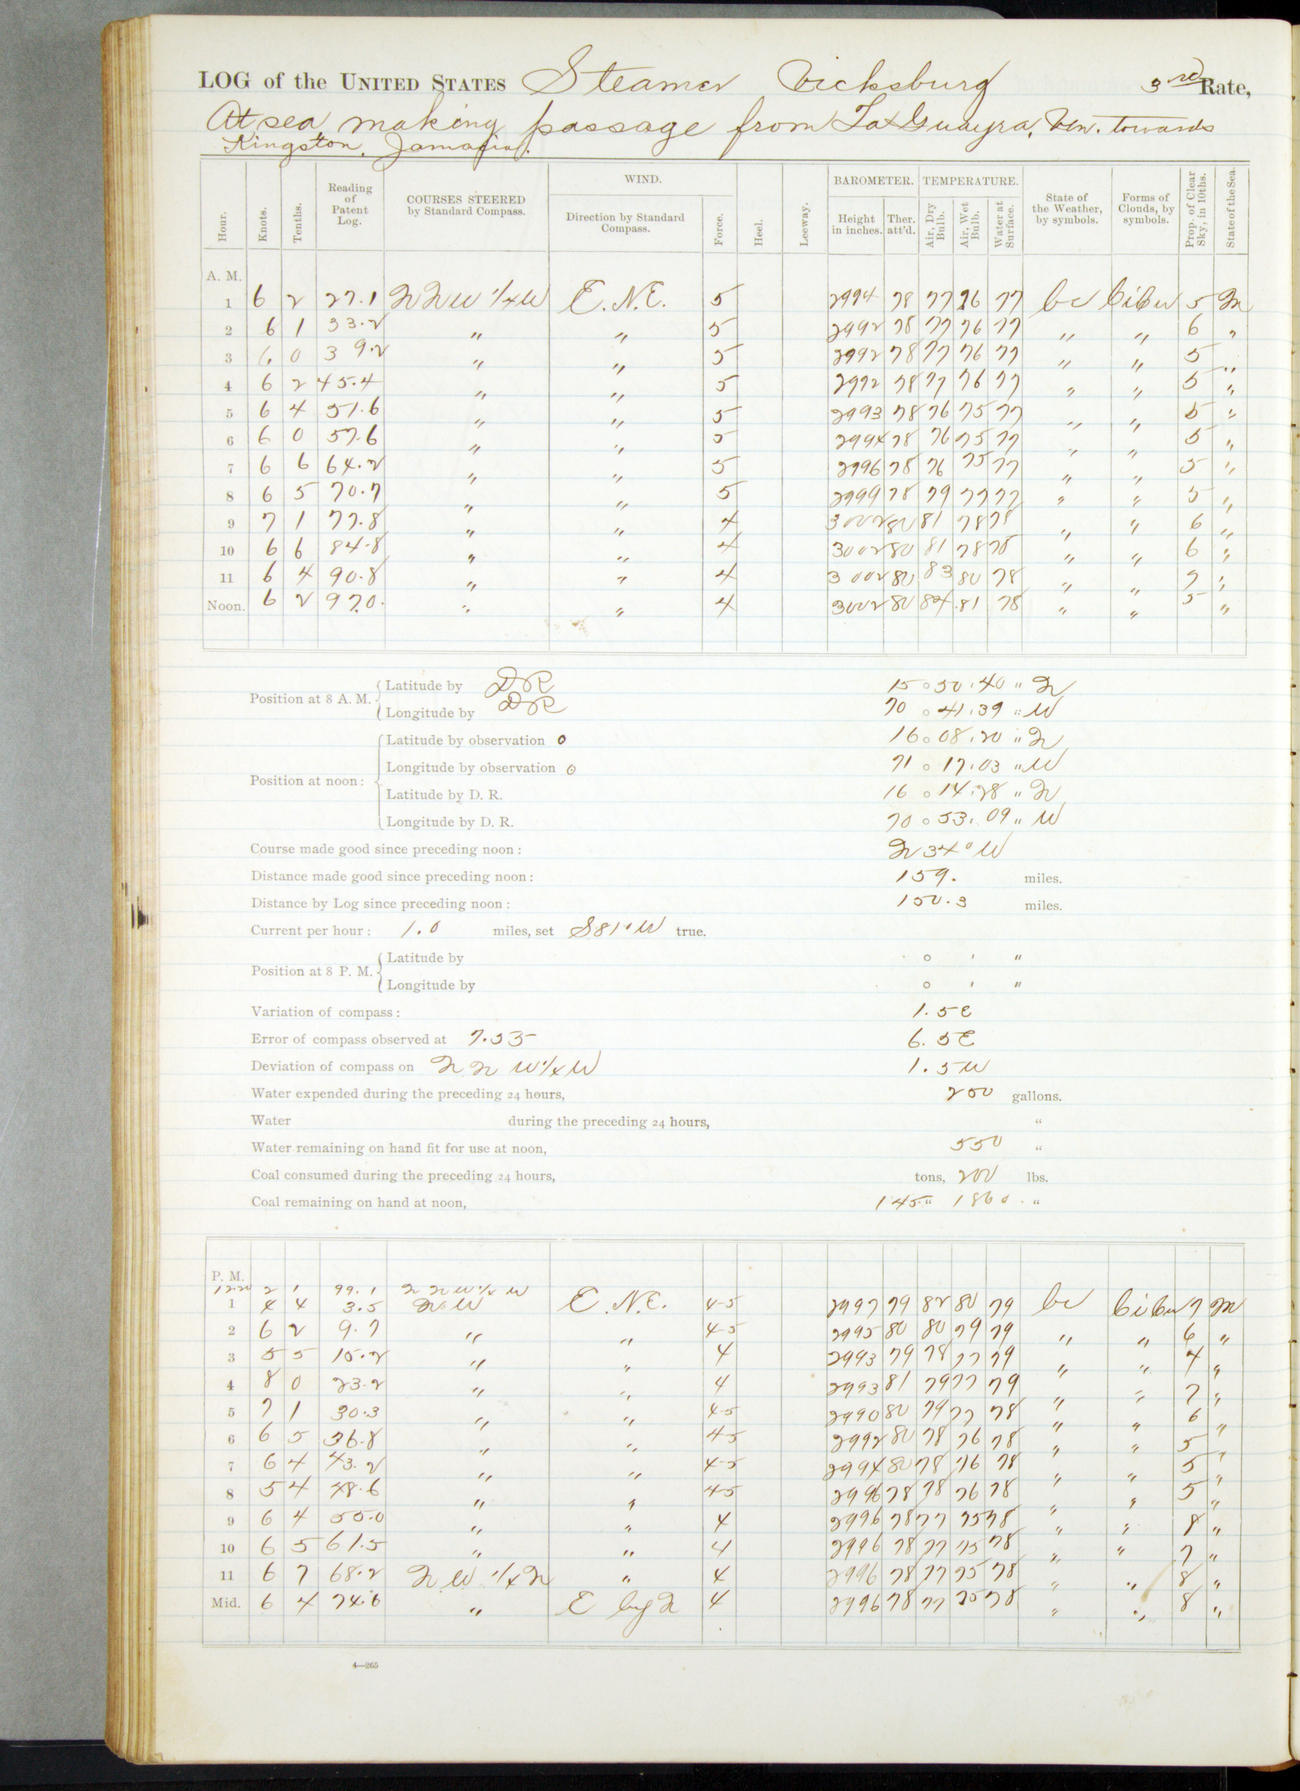 LOG of the UNITED STATES Steamer Vicksburg 3rd Rate,
At sea making passage from La Guayra, Ven. towards
Kingston, Jamaica.
Hour. Knots. Tenths. Reading of Patent Log. COURSES STEERED by Standard Compass. WIND. Direction by Standard Compass. Force. Heel. Leeway. BAROMETER. Height in inches. Ther. att'd. TEMPERATURE. Air, Dry Bulb. Air, Wet Bulb. Water at Surface. State of the Weather, by symbols. Forms of Clouds, by symbols. Prop. of Clear Sky, in 10ths. State of the Sea.
A. M.
1 6 2 27.1 NNW 1/4 W E.N.E. 5 2994 78 77 76 77 bc CiCu 5 M
2 6 1 33.2 " " 5 2992 78 77 76 77 " " 6 "
3 6 0 39.2 " " 5 2992 78 77 76 77 " " 5 "
4 6 2 45.4 " " 5 2992 78 77 76 77 " " 5 "
5 6 4 51.6 " " 5 2993 78 76 75 77 " " 5 "
6 6 0 57.6 " " 5 2994 78 76 75 77 " " 5 "
7 6 6 64.2 " " 5 2996 78 76 75 77 " " 5 "
8 6 5 70.7 " " 5 2999 78 79 77 77 " " 5 "
9 7 1 77.8 " " 4 3002 80 81 78 78 " " 6 "
10 6 6 84.8 " " 4 3002 80 81 78 78 " " 6 "
11 6 4 90.8 " " 4 3002 80 83 80 78 " " 7 "
Noon. 6 2 97.0. " " 4 3002 80 84 81 78 " " 5 "
Position at 8 A. M. Latitude by DR 15 ° 50 ' 40 " N
Longitude by DR 70 ° 41 ' 39 " W
Position at noon: Latitude by observation o 16 ° 08 ' 20 " N
Longitude by observation o 71 ° 17 ' 03 " W
Latitude by D. R. 16 ° 14 ' 28 " N
Longitude by D. R. 70 ° 53 ' 09 " W
Course made good since preceding noon: N 34° W
Distance made good since preceding noon: 159. miles.
Distance by Log since preceding noon: 150.3 miles.
Current per hour: 1.0 miles, set S 81° W true.
Position at 8 P. M. Latitude by ° ' "
Longitude by ° ' "
Variation of compass: 1.5E
Error of compass observed at 7.55 6.5E
Deviation of compass on NNW 1/4 W 1.5W
Water expended during the preceding 24 hours, 200 gallons.
Water during the preceding 24 hours, "
Water remaining on hand fit for use at noon, 550 "
Coal consumed during the preceding 24 hours, tons, 200 lbs.
Coal remaining on hand at noon, 145 " 1860 "
P. M.
12.20 2 1 99.1 NNW 1/4 W
1 4 4 3.5 NW E.N.E. 4-5 2997 79 82 80 79 bc CiCu 7 M
2 6 2 9.7 " " 4-5 2995 80 80 79 79 " " 6 "
3 5 5 15.2 " " 4 2993 79 78 77 79 " " 7 "
4 8 0 23.2 " " 4 2993 81 79 77 79 " " 7 "
5 7 1 30.3 " " 4-5 2990 80 79 77 78 " " 6 "
6 6 5 36.8 " " 4-5 2992 80 78 76 78 " " 5 "
7 6 4 43.2 " " 4-5 2994 80 78 76 78 " " 5 "
8 5 4 48.6 " " 4-5 2996 78 78 76 78 " " 5 "
9 6 4 55.0 " " 4 2996 78 77 75 78 " " 8 "
10 6 5 61.5 " " 4 2996 78 77 75 78 " " 7 "
11 6 7 68.2 NW 1/4 N " 4 2996 78 77 75 78 " " 8 "
Mid. 6 4 74.6 " E by N 4 2996 78 77 75 78 " " 8 "
4—265